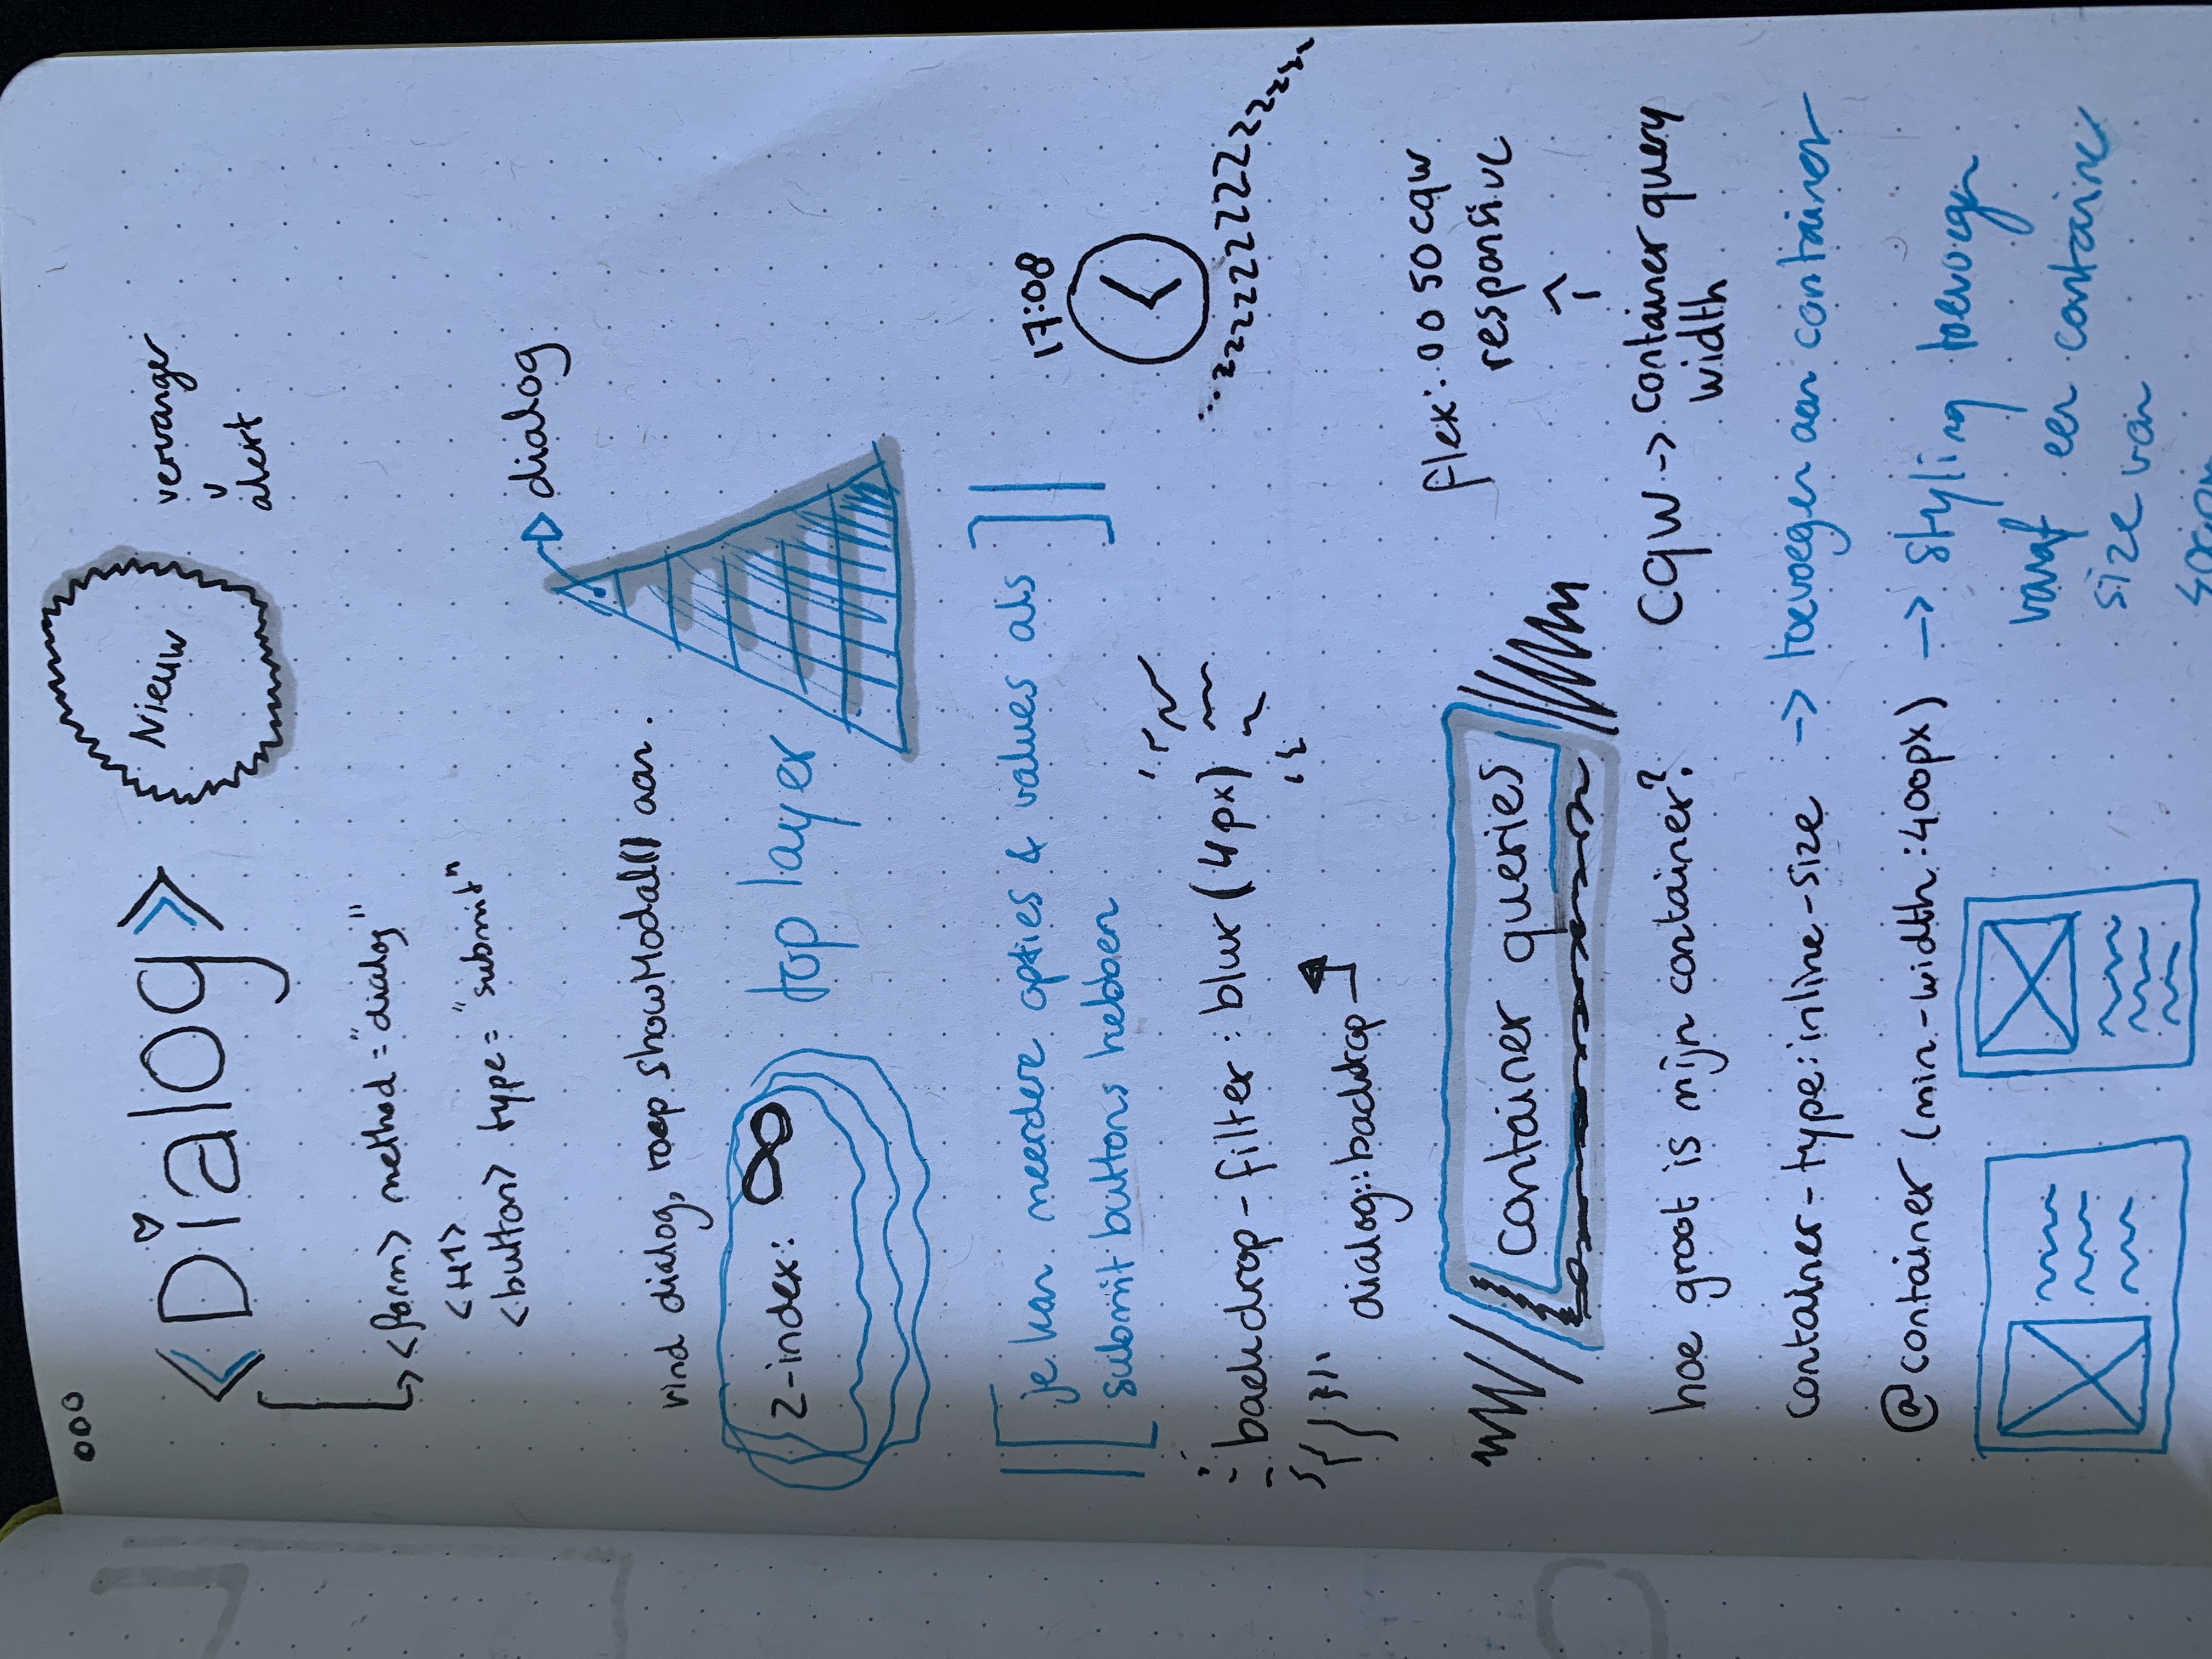 <Dialog>
Nieuw
vervanger
v
alert
<form> method = "dialog"
<H1>
<button> type = "submit"
dialog
vind dialog, roep showModal() aan.
z-index: ∞
top layer
je kan meerdere opties & values als
submit buttons hebben
17:08
zzzzzzzzzzzzzzzz
backdrop-filter: blur(4px)
dialog::backdrop
container queries
flex: 0 0 50cqw
responsive
hoe groot is mijn container?
cqw -> container query
width
container-type: inline-size -> toevoegen aan container
@container (min-width: 400px) -> styling toevoegen
vanaf een container
size van